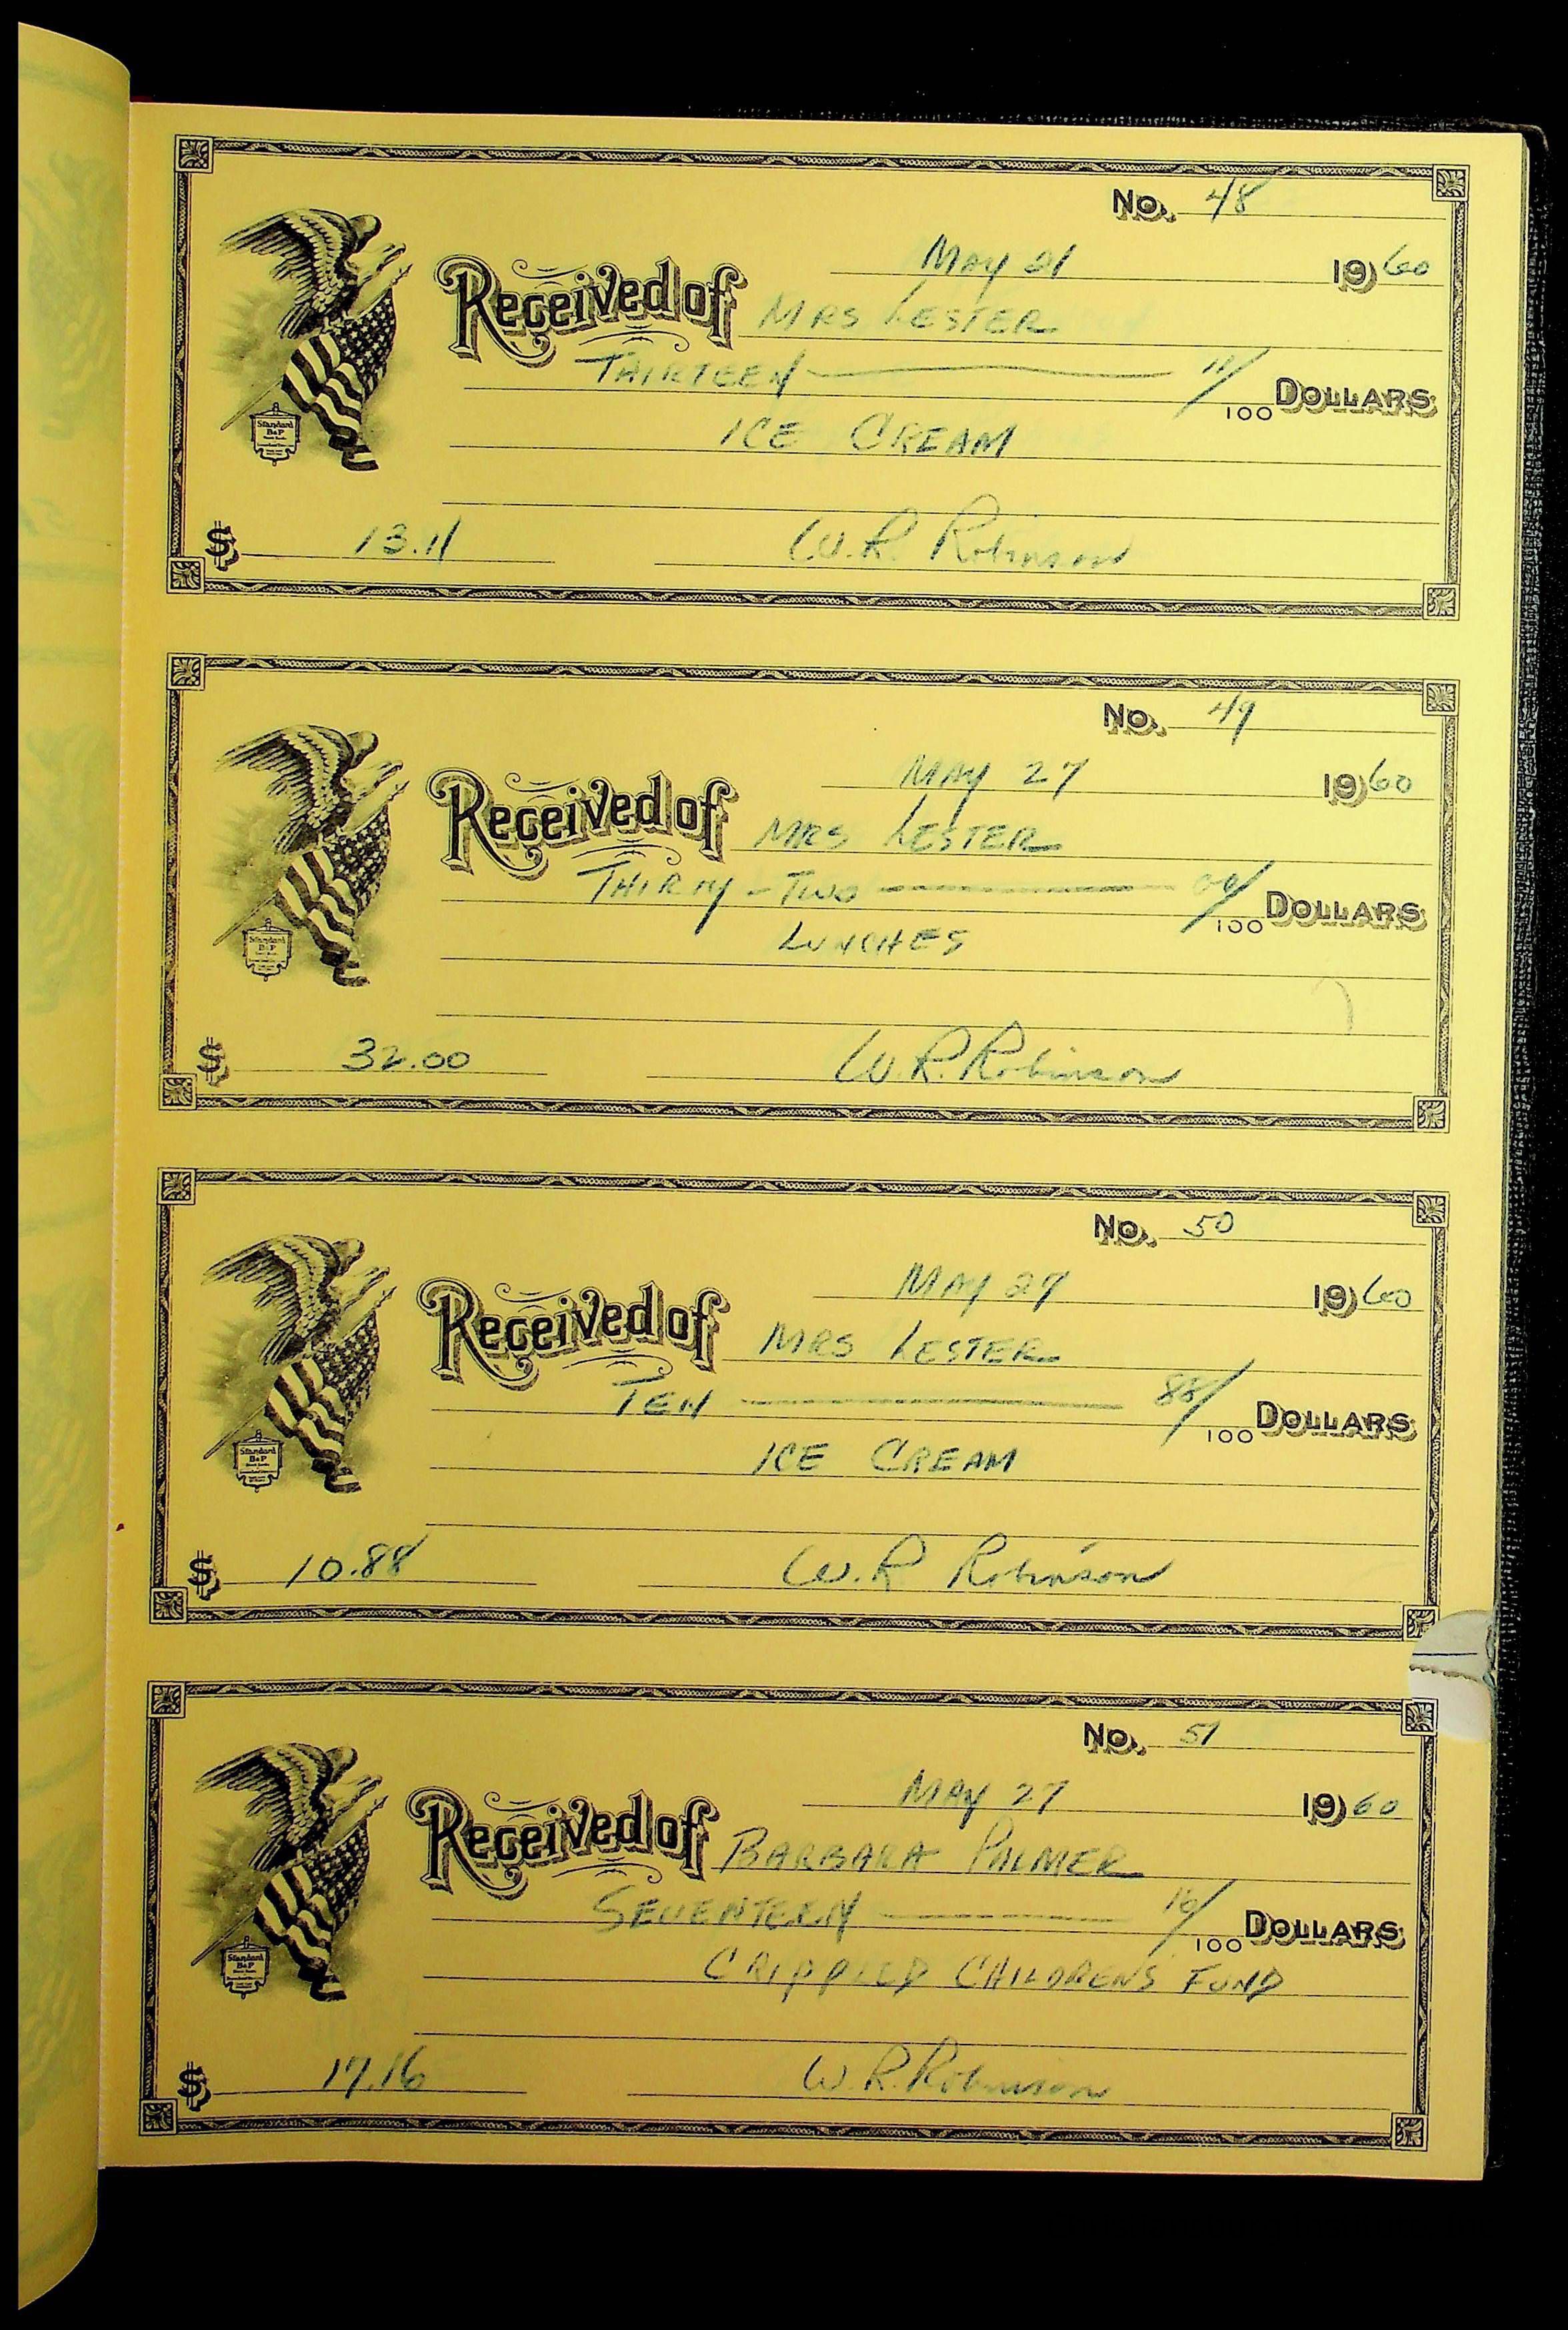 No. 48
May 21 1960
Received of MRS LESTER
THIRTEEN 11/100 DOLLARS
ICE CREAM
Standard
B&P
$ 13.11 W.R. Robinson
No. 49
MAY 27 1960
Received of MRS LESTER
THIRTY - TWO 00/100 DOLLARS
LUNCHES
Standard
B&P
$ 32.00 W.R. Robinson
No. 50
MAY 27 1960
Received of MRS LESTER
TEN 88/100 DOLLARS
ICE CREAM
Standard
B&P
$ 10.88 W.R Robinson
No. 51
MAY 27 1960
Received of BARBARA PALMER
SEVENTEEN 16/100 DOLLARS
CRIPPLED CHILDRENS FUND
Standard
B&P
$ 17.16 W.R. Robinson